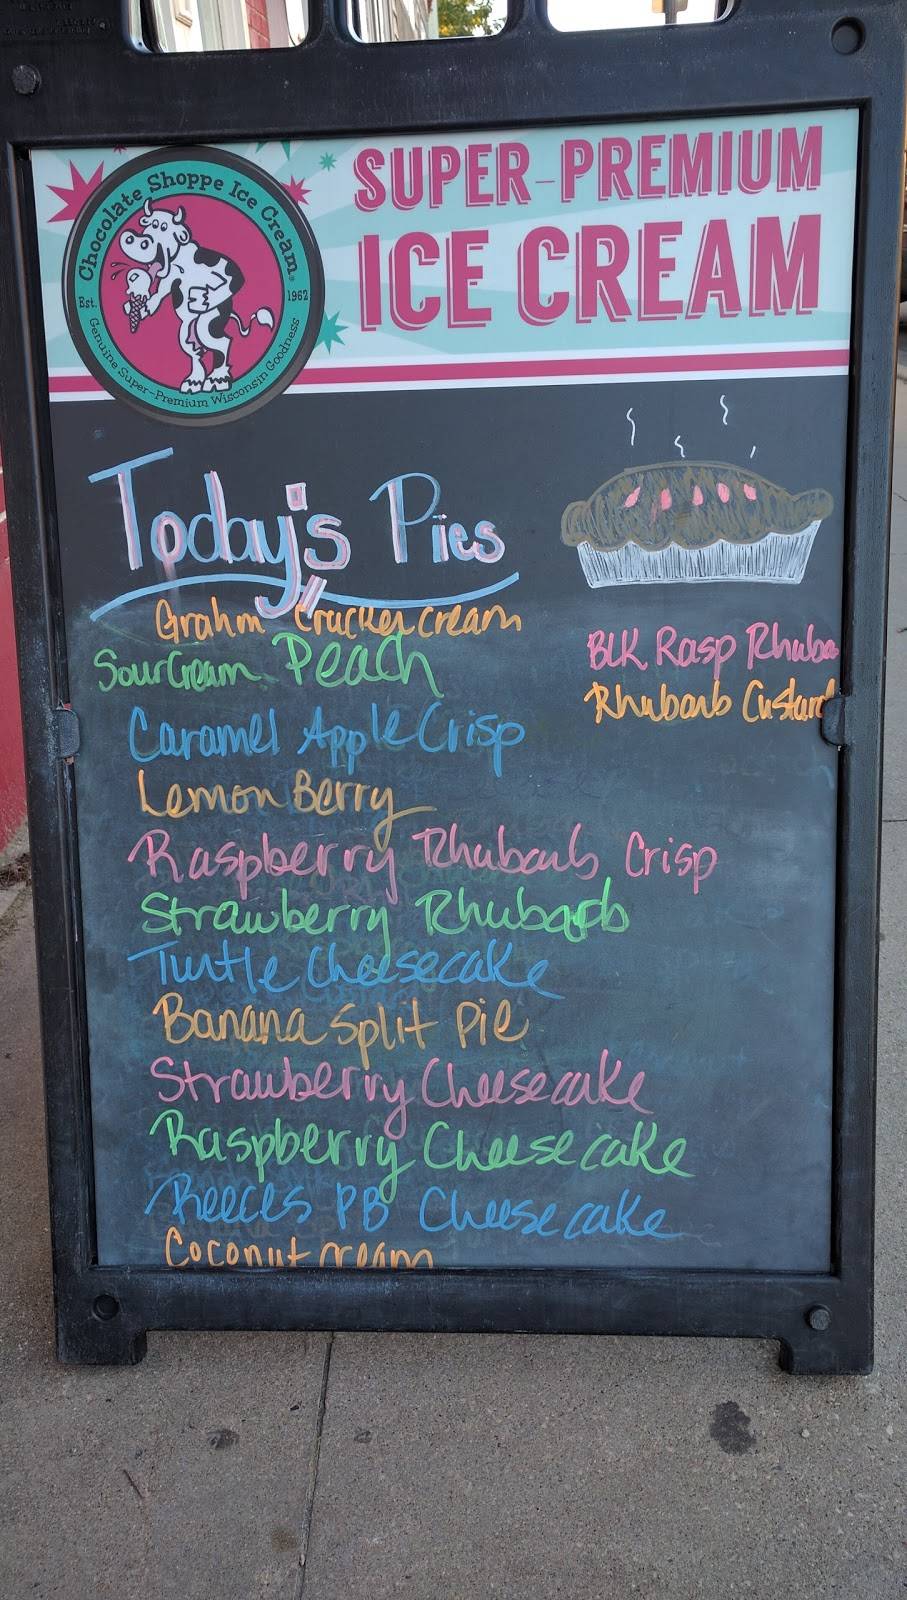 Chocolate Shoppe Ice Cream®
Est. 1962
Genuine Super-Premium Wisconsin Goodness
SUPER-PREMIUM
ICE CREAM
Today's Pies
Grahm Cracker cream
Sour Cream Peach
Caramel Apple Crisp
Lemon Berry
Raspberry Rhubarb Crisp
Strawberry Rhubarb
Turtle Cheesecake
Banana Split Pie
Strawberry Cheesecake
Raspberry Cheesecake
Reeces PB Cheesecake
Coconut cream
BLK Rasp Rhuba
Rhubarb Custard